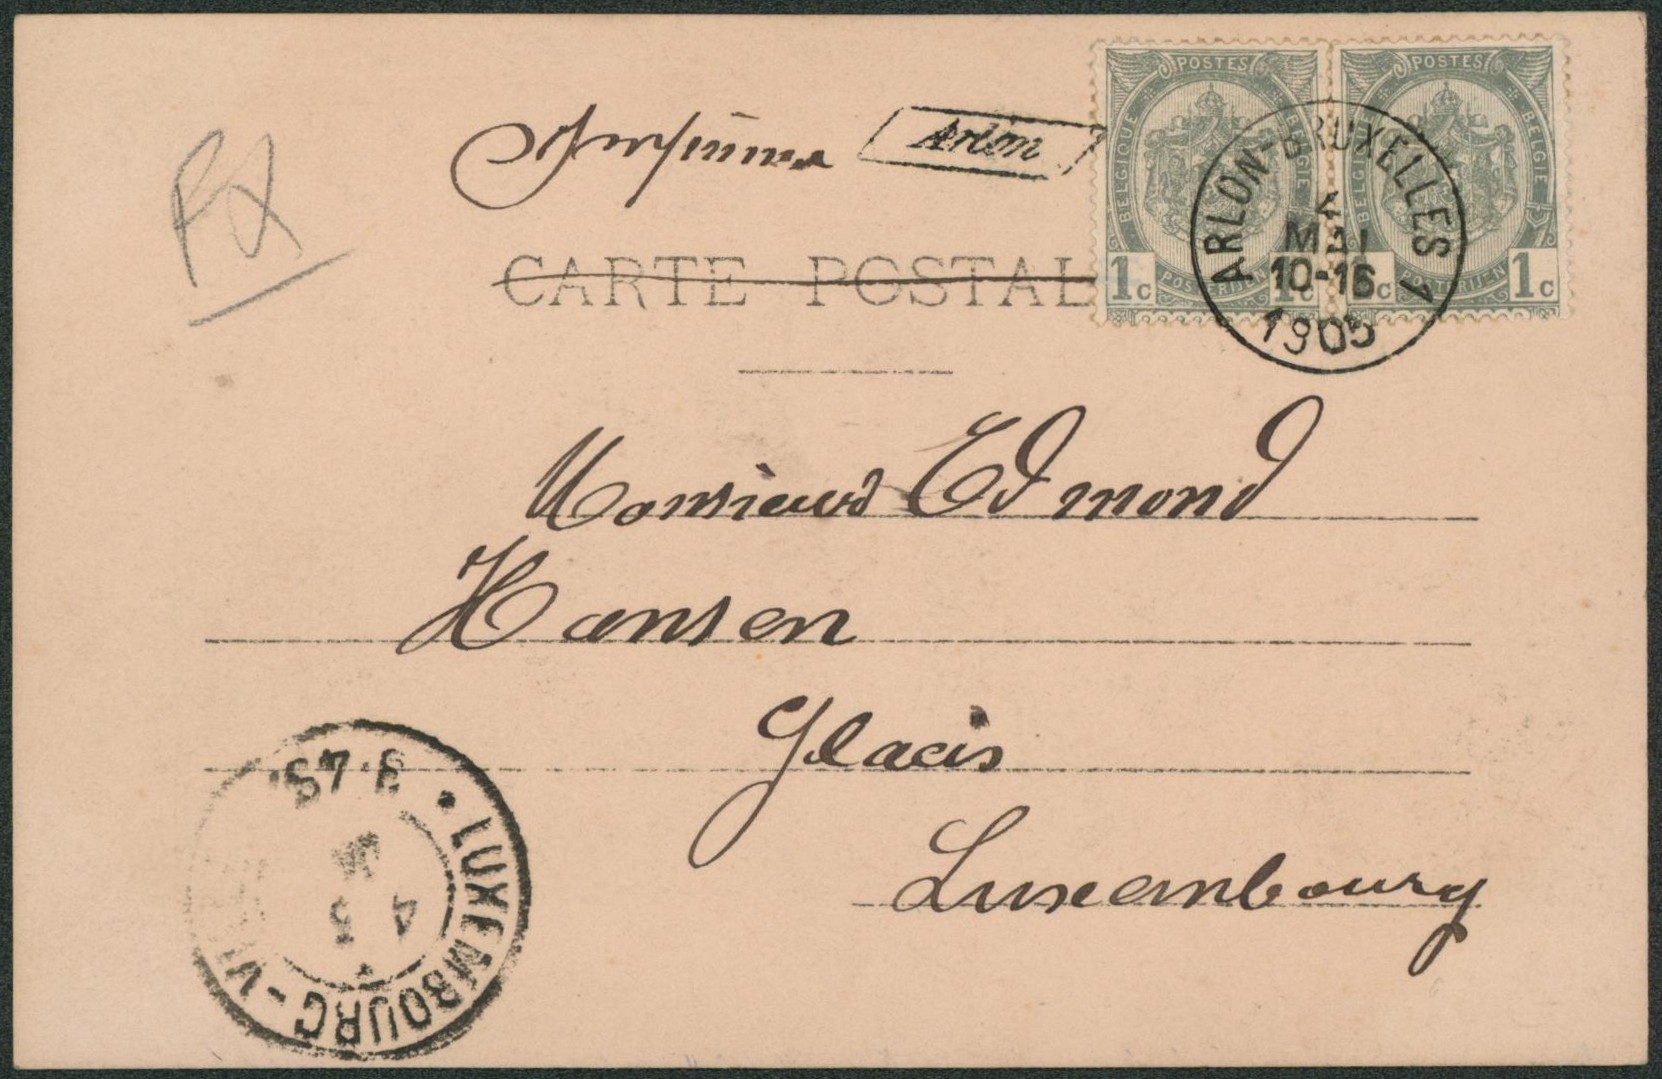 PX
Imprimé
Arlon
CARTE POSTAL
POSTES
BELGIQUE
BELGIE
POSTERIJEN
1c
1c
POSTES
BELGIQUE
BELGIE
POSTERIJEN
1c
ARLON-BRUXELLES 1
MAI
10-16
1905
Monsieur Edmond
Hansen
Glacis
Luxembourg
LUXEMBOURG-VI